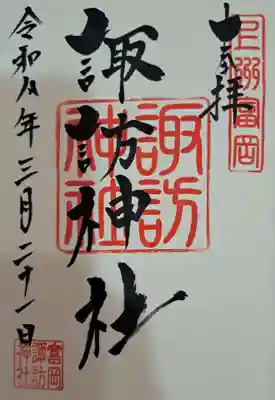 上州富岡
奉拝
諏訪神社
諏訪
神社
令和八年三月二十一日
富岡
諏訪
神社